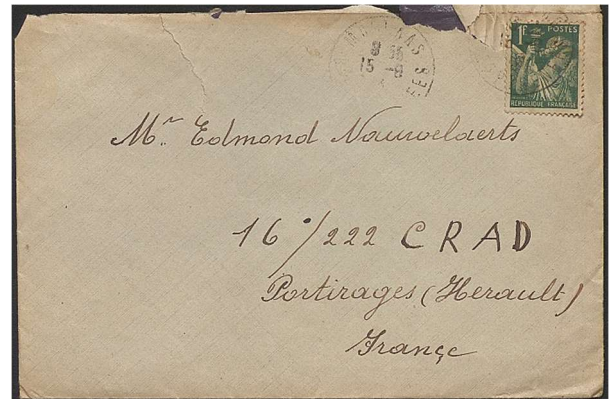 1F POSTES
RÉPUBLIQUE FRANÇAISE
15 -9
Mr Edmond Nauwelaerts
16/222 CRAD
Portirages (Herault)
France